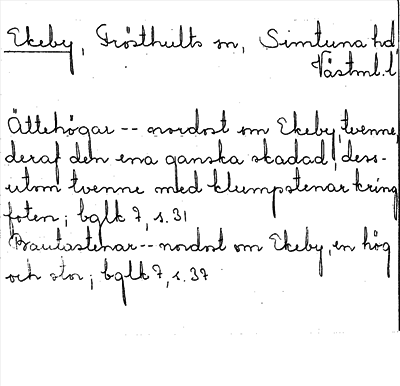 Ekeby, Frösthults sn, Simtuna hd,
Västml. l.
Ättehögar -- nordost om Ekeby, tvenne,
deraf den ena ganska skadad, dess-
utom tvenne med klumpstenar kring
foten; bglk 7, s. 31
Bautastenar -- nordost om Ekeby, en hög
och stor; bglk 7, s. 37